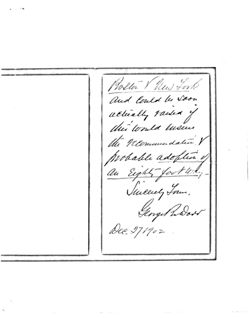 Boston & New York
and could be soon
actually raised if
this would insure
the recommendation &
probable adoption of
an Eighty foot
Sincerely Yours,
George R.
Dec. 27 1902